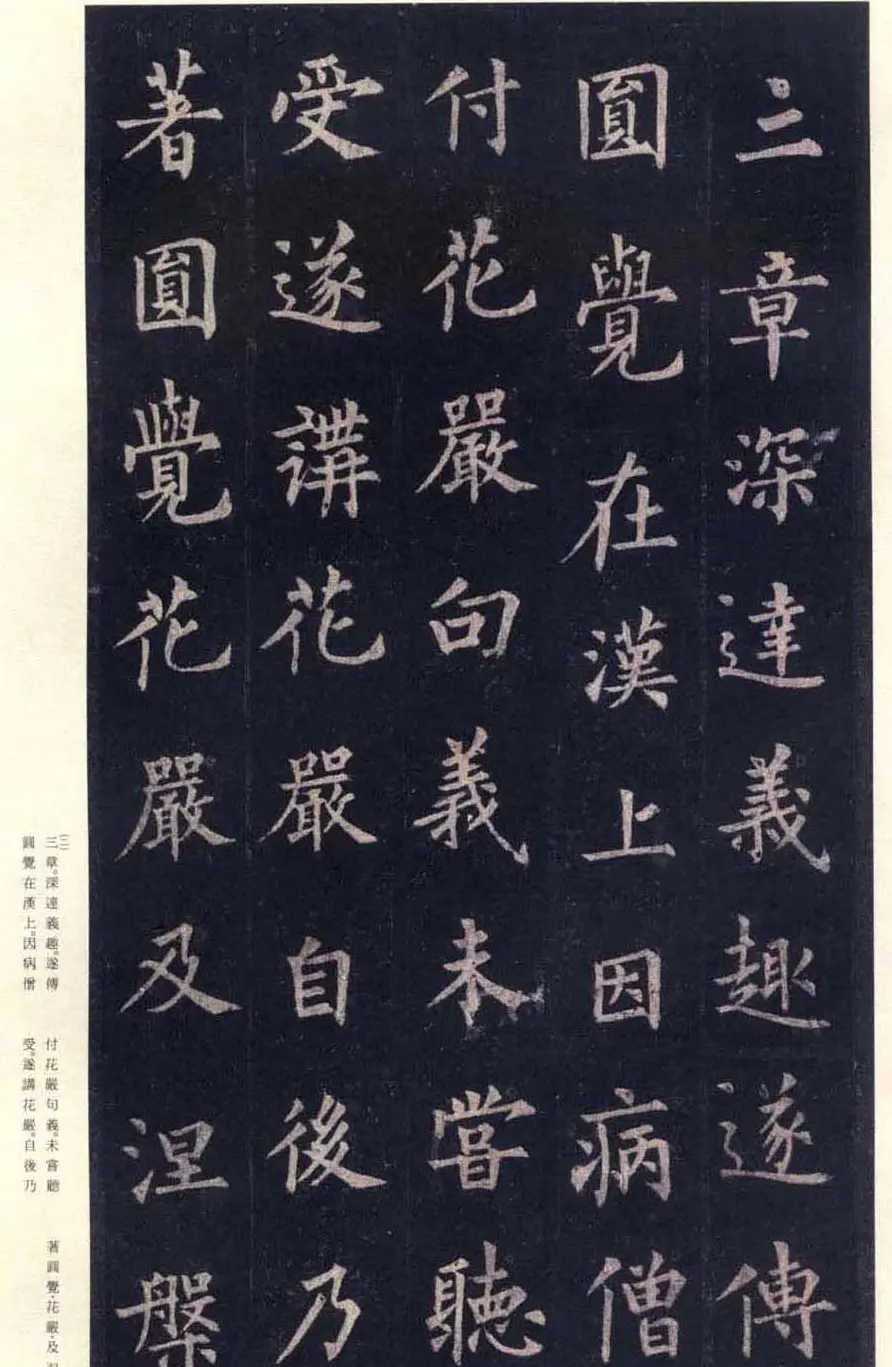 三章深達義趣遂傳
圓覺在漢上因病僧
付花嚴句義未嘗聽
受遂講花嚴自後乃
著圓覺花嚴及涅槃
(二)
三章。深達義趣。遂傳
圓覺在漢上。因病僧
付花嚴句義。未嘗聽
受。遂講花嚴。自後乃
著圓覺·花嚴·及涅